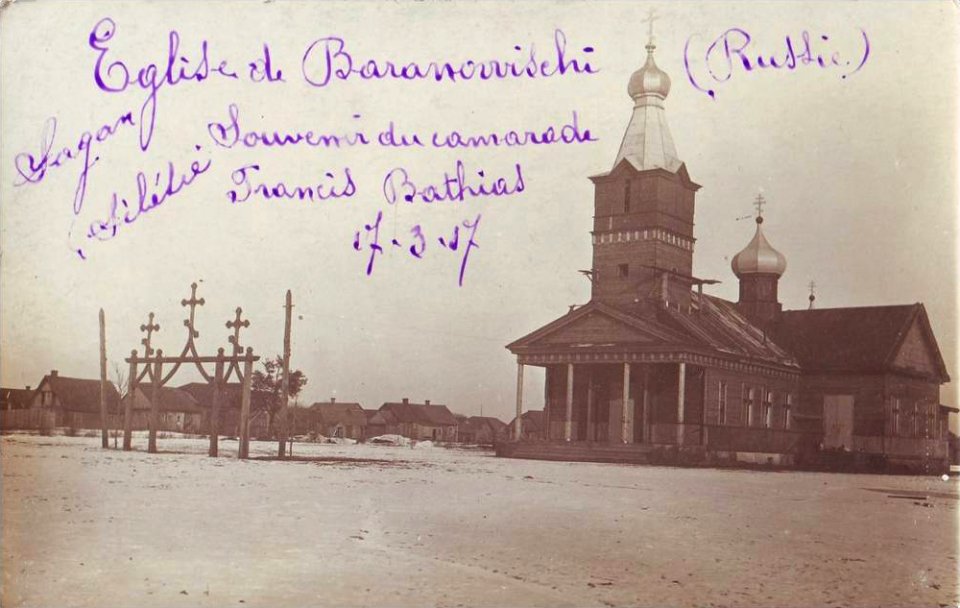 Eglise de Baranowischi (Russie)
Sagan
(Silésie
Souvenir du camarade
Francis Bathias
17.3.17